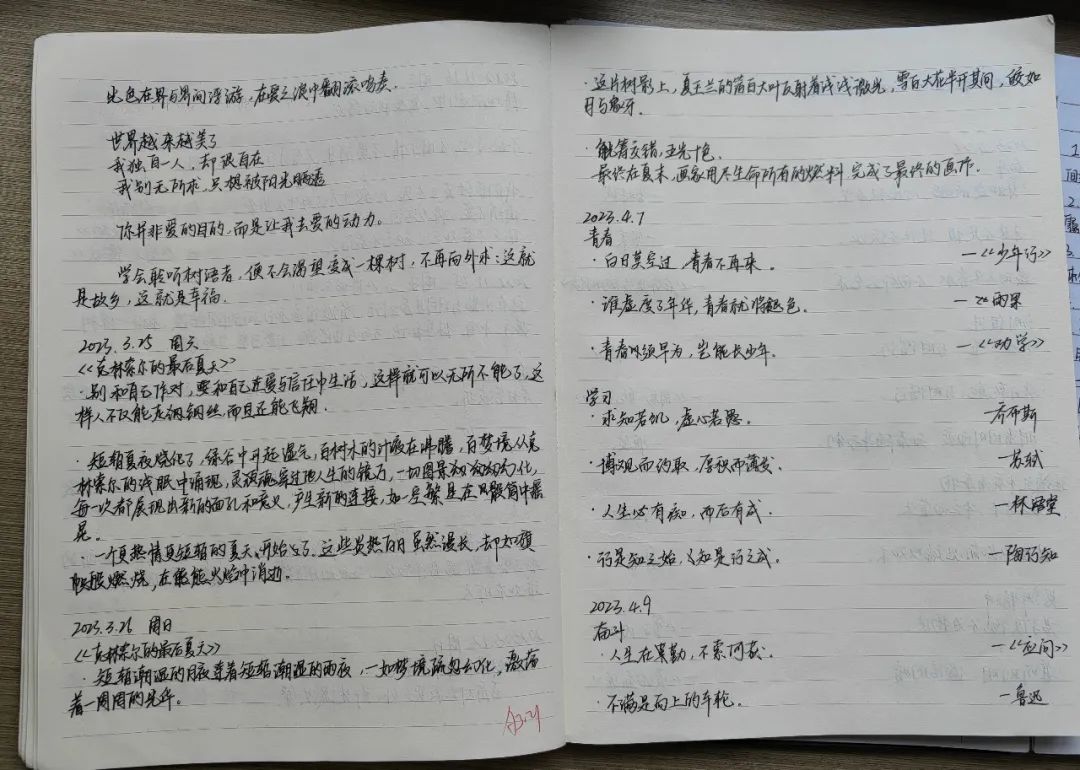 此色在界与界间浮游，在云之浪中翻滚鸣奏.
世界越来越美了
我独自一人，却很自在
我别无所求，只想被阳光晒透
你并非爱的目的，而是让我去爱的动力。
学会聆听树语者，便不会渴望变成一棵树，不再向外求：这就
是故乡，这就是幸福.
2023. 3. 25 周六
《克林索尔的最后夏天》
·别和自己作对，要和自己在爱与信任中生活，这样就可以无所不能了，这
样人不仅能走钢丝，而且还能飞翔.
·短暂夏夜烧化了，绿谷中升起湿气，百树木的汁液在沸腾，百梦境从克
林索尔的浅眠中涌现，灵魂穿过他人生的镜厅，一切图景幻化，
每一次都展现出新的面孔和意义，产生新的连接，如一片繁星在骰筒中摇
晃.
·一个更热情更短暂的夏天开始了。这些炎热白日虽然漫长，却如旗
帜般燃烧，在熊熊火焰中消逝.
2023. 3. 26 周日
《克林索尔的最后夏天》
·短暂潮湿的月夜连着短暂潮湿的雨夜，一如梦境疏忽幻化，激荡
着一周周的光华。
·这片树影上，夏玉兰的苍白大叶反射着浅浅微光，雪白大花半开其间，皎如
月与象牙.
·觥筹交错，五光十色.
最终在夏末，画家用尽生命所有的燃料 完成了最终的画作.
2023. 4. 7
青春
·白日莫空过，青春不再来. —《少年行》
·谁虚度了年华，青春就将褪色. — 雨果
·青春须早为，岂能长少年. —《劝学》
学习
·求知若饥，虚心若愚. — 乔布斯
·博观而约取，厚积而薄发. —苏轼
·人生必有痴，而后有成. —林语堂
·行是知之始，知是行之成. —陶行知
2023. 4. 9
奋斗
·人生在勤，不索何获. —《应间》
·不满是向上的车轮. —鲁迅